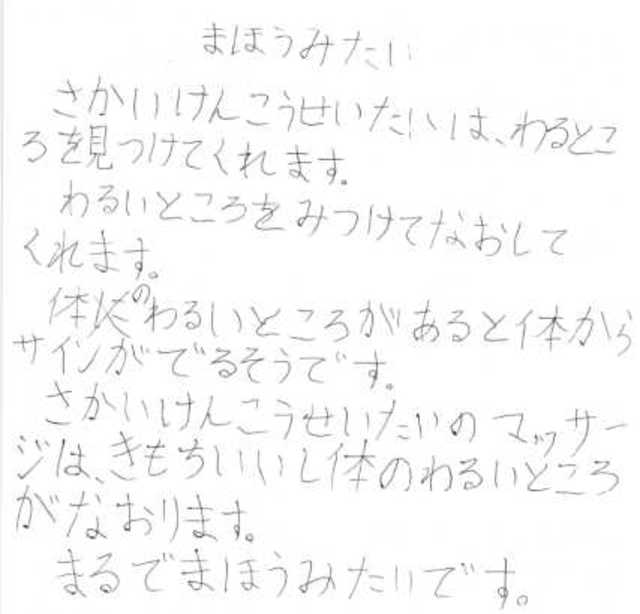 まほうみたい
さかいけんこうせいたいは、わるとこ
ろを見つけてくれます。
わるいところをみつけてなおして
くれます。
体のわるいところがあると体から
サインがでるそうです。
さかいけんこうせいたいの マッサー
ジは、きもちいいし体のわるいところ
がなおります。
まるでまほうみたいです。